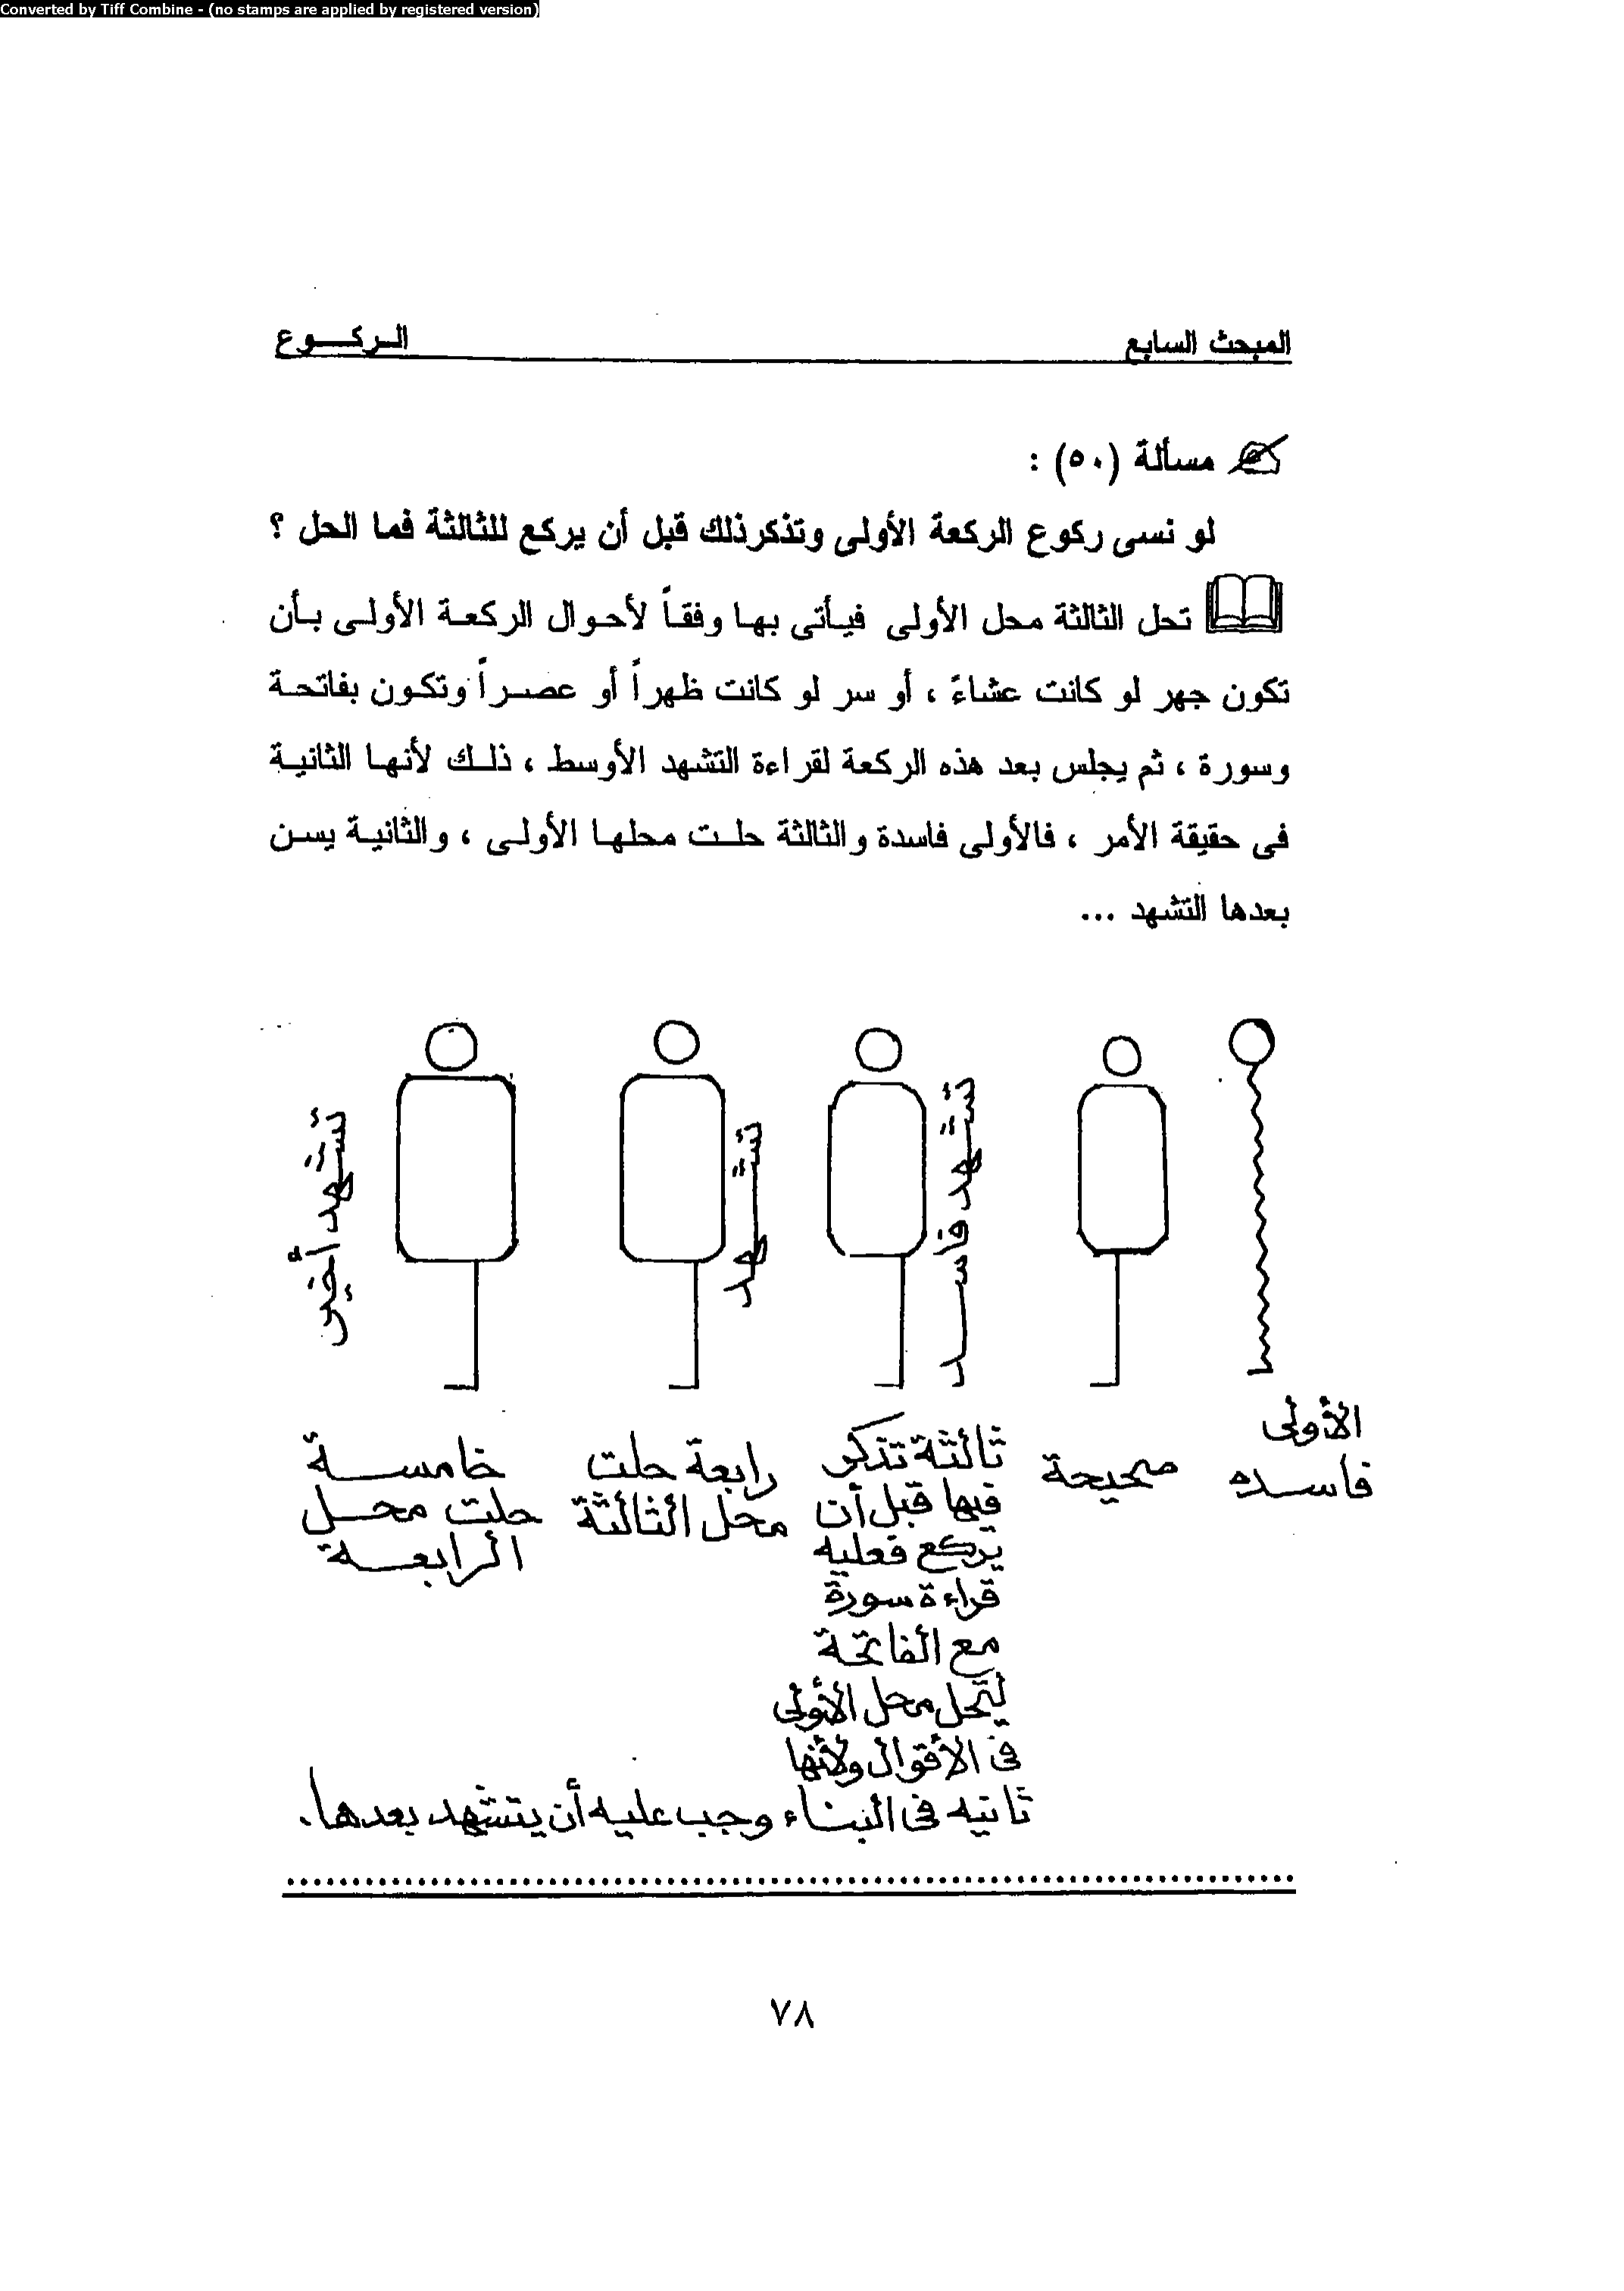 Converted by Tiff Combine - (no stamps are applied by registered version)
المبحث السابع الركوع
مسألة (٥٠) :
لو نسى ركوع الركعة الأولى وتذكرذلك قبل أن يركع للثالثة فما الحل ؟
تحل الثالثة محل الأولى فيأتى بها وفقاً لأحوال الركعة الأولى بأن
تكون جهر لو كانت عشاءً ، أو سر لو كانت ظهراً أو عصراً وتكون بفاتحة
وسورة ، ثم يجلس بعد هذه الركعة لقراءة التشهد الأوسط ، ذلك لأنها الثانية
فى حقيقة الأمر ، فالأولى فاسدة والثالثة حلت محلها الأولى ، والثانية يسن
بعدها التشهد ...
تشهد فاسد
تشهد
تشهد أخير
الأولى
فاسده
صحيحة
ثالثة تذكر
فيها قبل أن
يركع فعليه
قراءة سورة
مع الفاتحة
لتحل محل الأولى
فى الأقوال ولأنها
ثانيه فى البناء وجب عليه أن يتشهد بعدها.
رابعة حلت
محل الثالثة
خامسة
حلت محل
الرابعة
٧٨